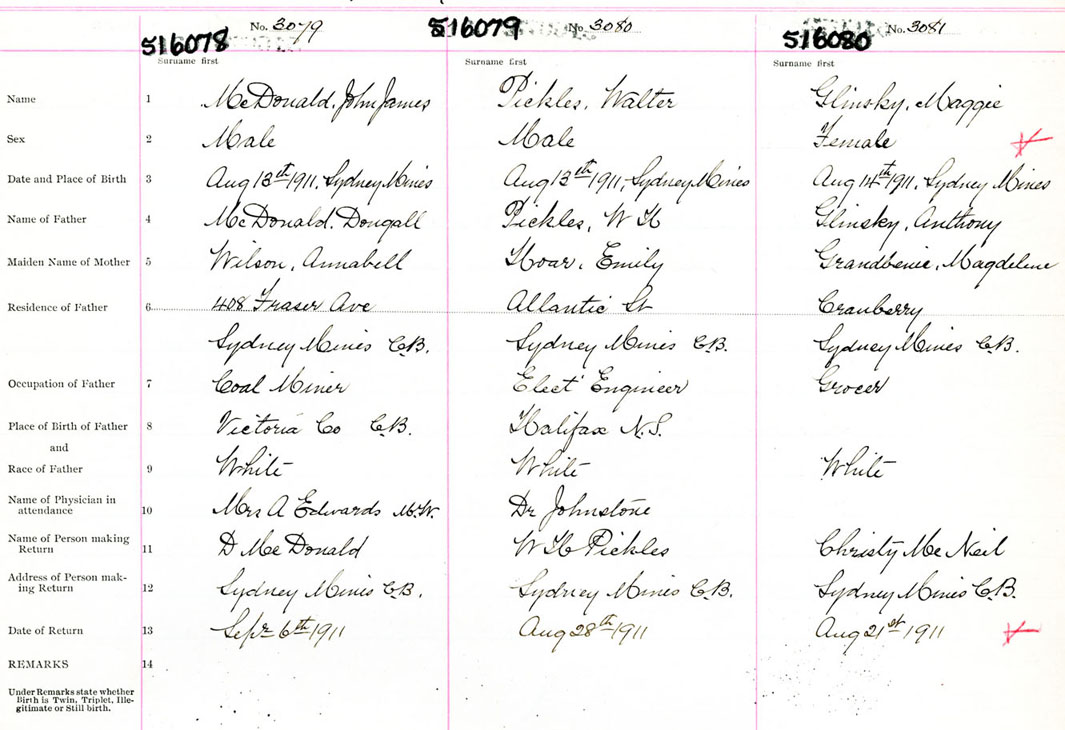 516078 No. 3079 516079 No. 3080 516080 No. 3081
Surname first Surname first Surname first
Name 1 McDonald, John James Pickles, Walter Glinsky, Maggie
Sex 2 Male Male Female
Date and Place of Birth 3 Aug 13th 1911, Sydney Mines Aug 13th 1911, Sydney Mines Aug 14th 1911, Sydney Mines
Name of Father 4 McDonald, Dougall Pickles, W H Glinsky, Anthony
Maiden Name of Mother 5 Wilson, Annabell Hoar, Emily Magdelene
Residence of Father 6 408 Fraser Ave Atlantic St Cranberry
Sydney Mines C.B. Sydney Mines C.B. Sydney Mines C.B.
Occupation of Father 7 Coal Miner Elect Engineer Grocer
Place of Birth of Father 8 Victoria Co C.B. Halifax N.S.
and
Race of Father 9 White White White
Name of Physician in
attendance 10 Mrs A Edwards M.W. Dr Johnstone
Name of Person making
Return 11 D McDonald W H Pickles Christy McNeil
Address of Person mak-
ing Return 12 Sydney Mines C.B. Sydney Mines C.B. Sydney Mines C.B.
Date of Return 13 Sept 6th 1911 Aug 28th 1911 Aug 21st 1911
REMARKS 14
Under Remarks state whether
Birth is Twin, Triplet, Ille-
gitimate or Still birth.